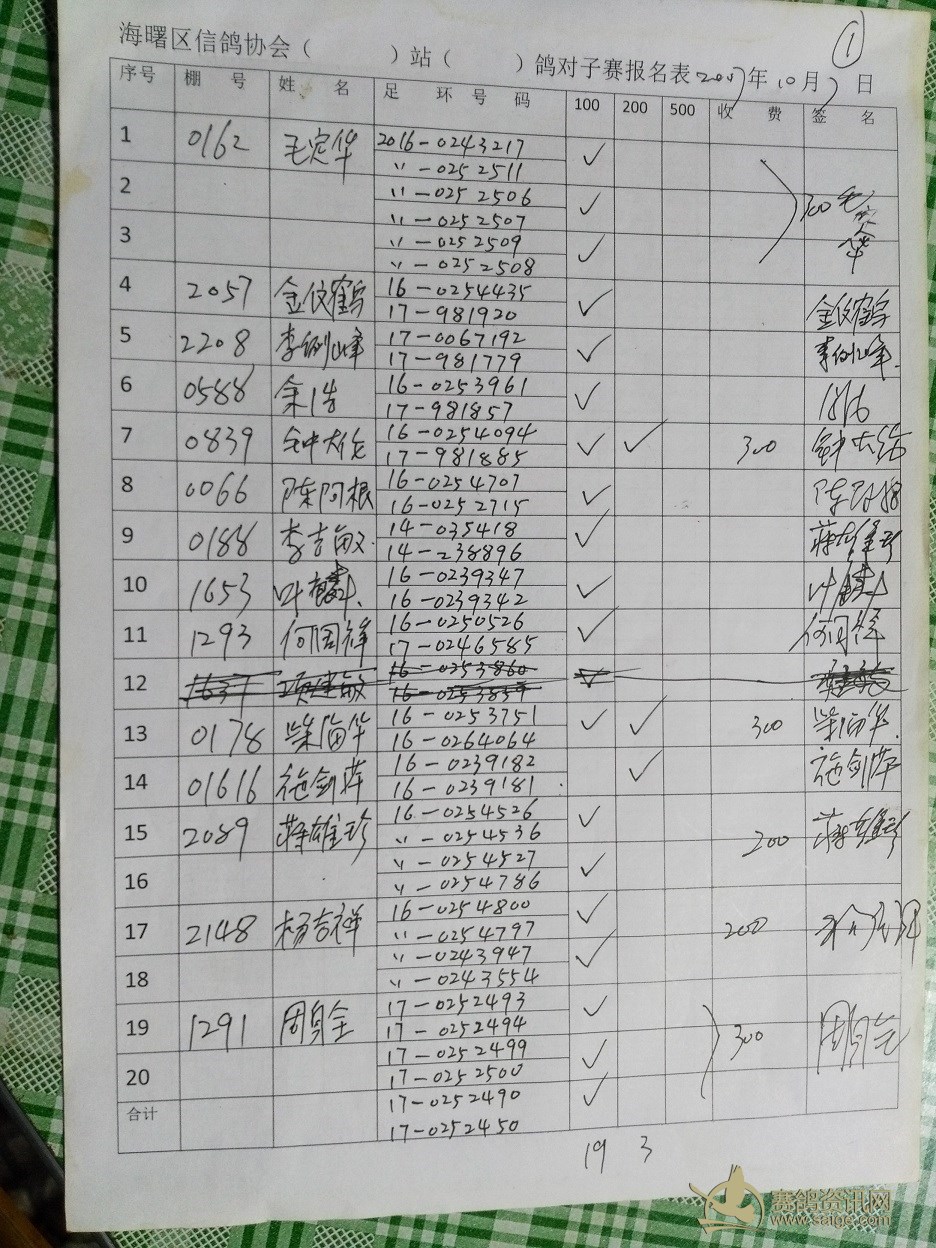 ①
海曙区信鸽协会（ ）站（ ）鸽对子赛报名表 2017年10月7日
序号 棚 号 姓 名 足 环 号 码 100 200 500 收 费 签 名
1 0162 毛定华 2016-0243217 ✓
〃-0252511
2 〃-0252506 ✓ 300 毛定华
〃-0252507
3 〃-0252509 ✓
〃-0252508
4 2057 金仪鹤 16-0254435 ✓ 金仪鹤
17-981920
5 2208 李例峰 17-0067192 ✓ 李例峰
17-981779
6 0588 余浩 16-0253961 ✓
17-981857
7 0839 钟大伦 16-0254094 ✓ ✓ 300 钟大伦
17-981885
8 0066 陈阿根 16-0254707 ✓ 陈阿根
16-0252715
9 0188 李吉敏 14-035418 ✓ 蒋雄珍
14-238896
10 1653 叶麟 16-0239347 ✓ 叶麟
16-0239342
11 1293 何周祥 16-0250526 ✓ 何周祥
17-0246585
12 1637 项建敏 16-0253860 ✓
16-0253859
13 0178 柴海华 16-0253751 ✓ ✓ 300 柴海华
16-0264064
14 01616 施剑萍 16-0239182 ✓ 施剑萍
16-0239181
15 2089 蒋雄珍 16-0254526 ✓ 200 蒋雄珍
〃-0254536
16 〃-0254527 ✓
〃-0254786
17 2148 杨吉祥 16-0254800 ✓ 200
〃-0254797
18 〃-0243947 ✓
〃-0243554
19 1291 周自全 17-0252493 ✓ 300 周自全
17-0252494
20 17-0252499 ✓
17-0252500
合计 17-0252490 ✓
17-0252450
19 3
赛鸽资讯网
www.saige.com